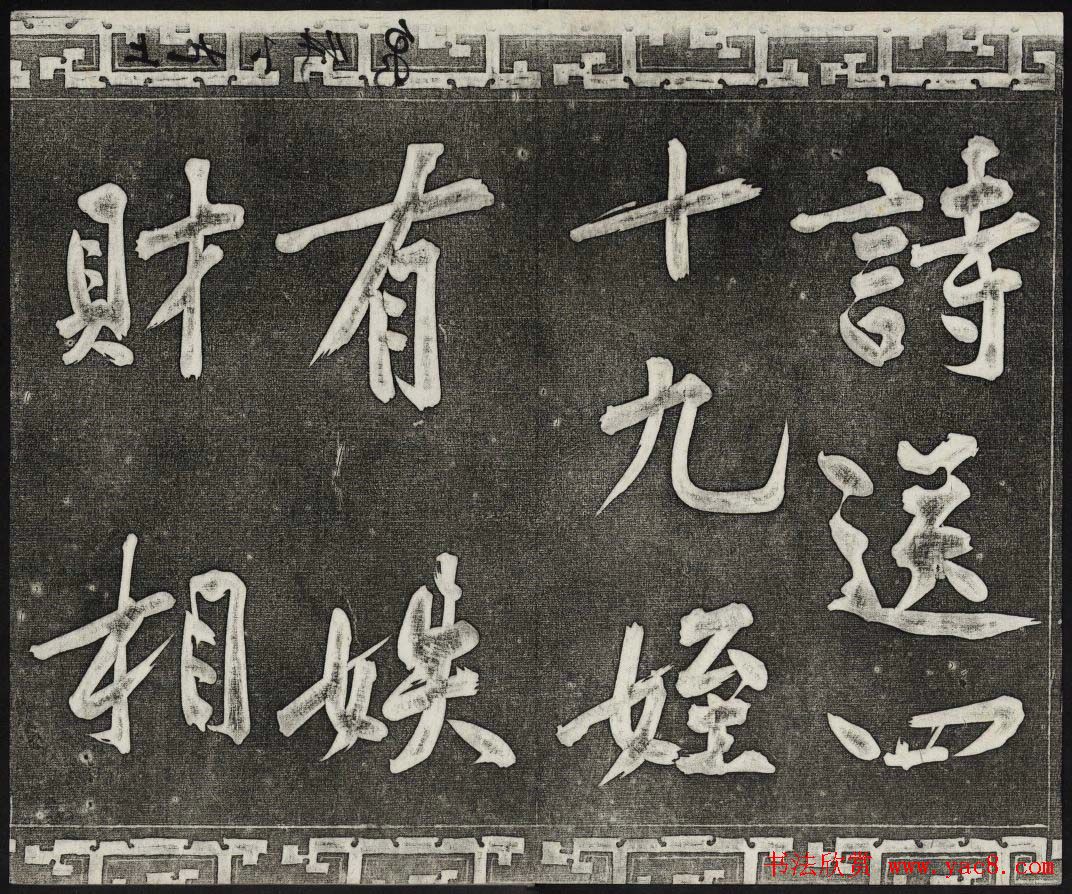 詩送四
十九姪
有
財相
书法欣赏 www.yac8.com